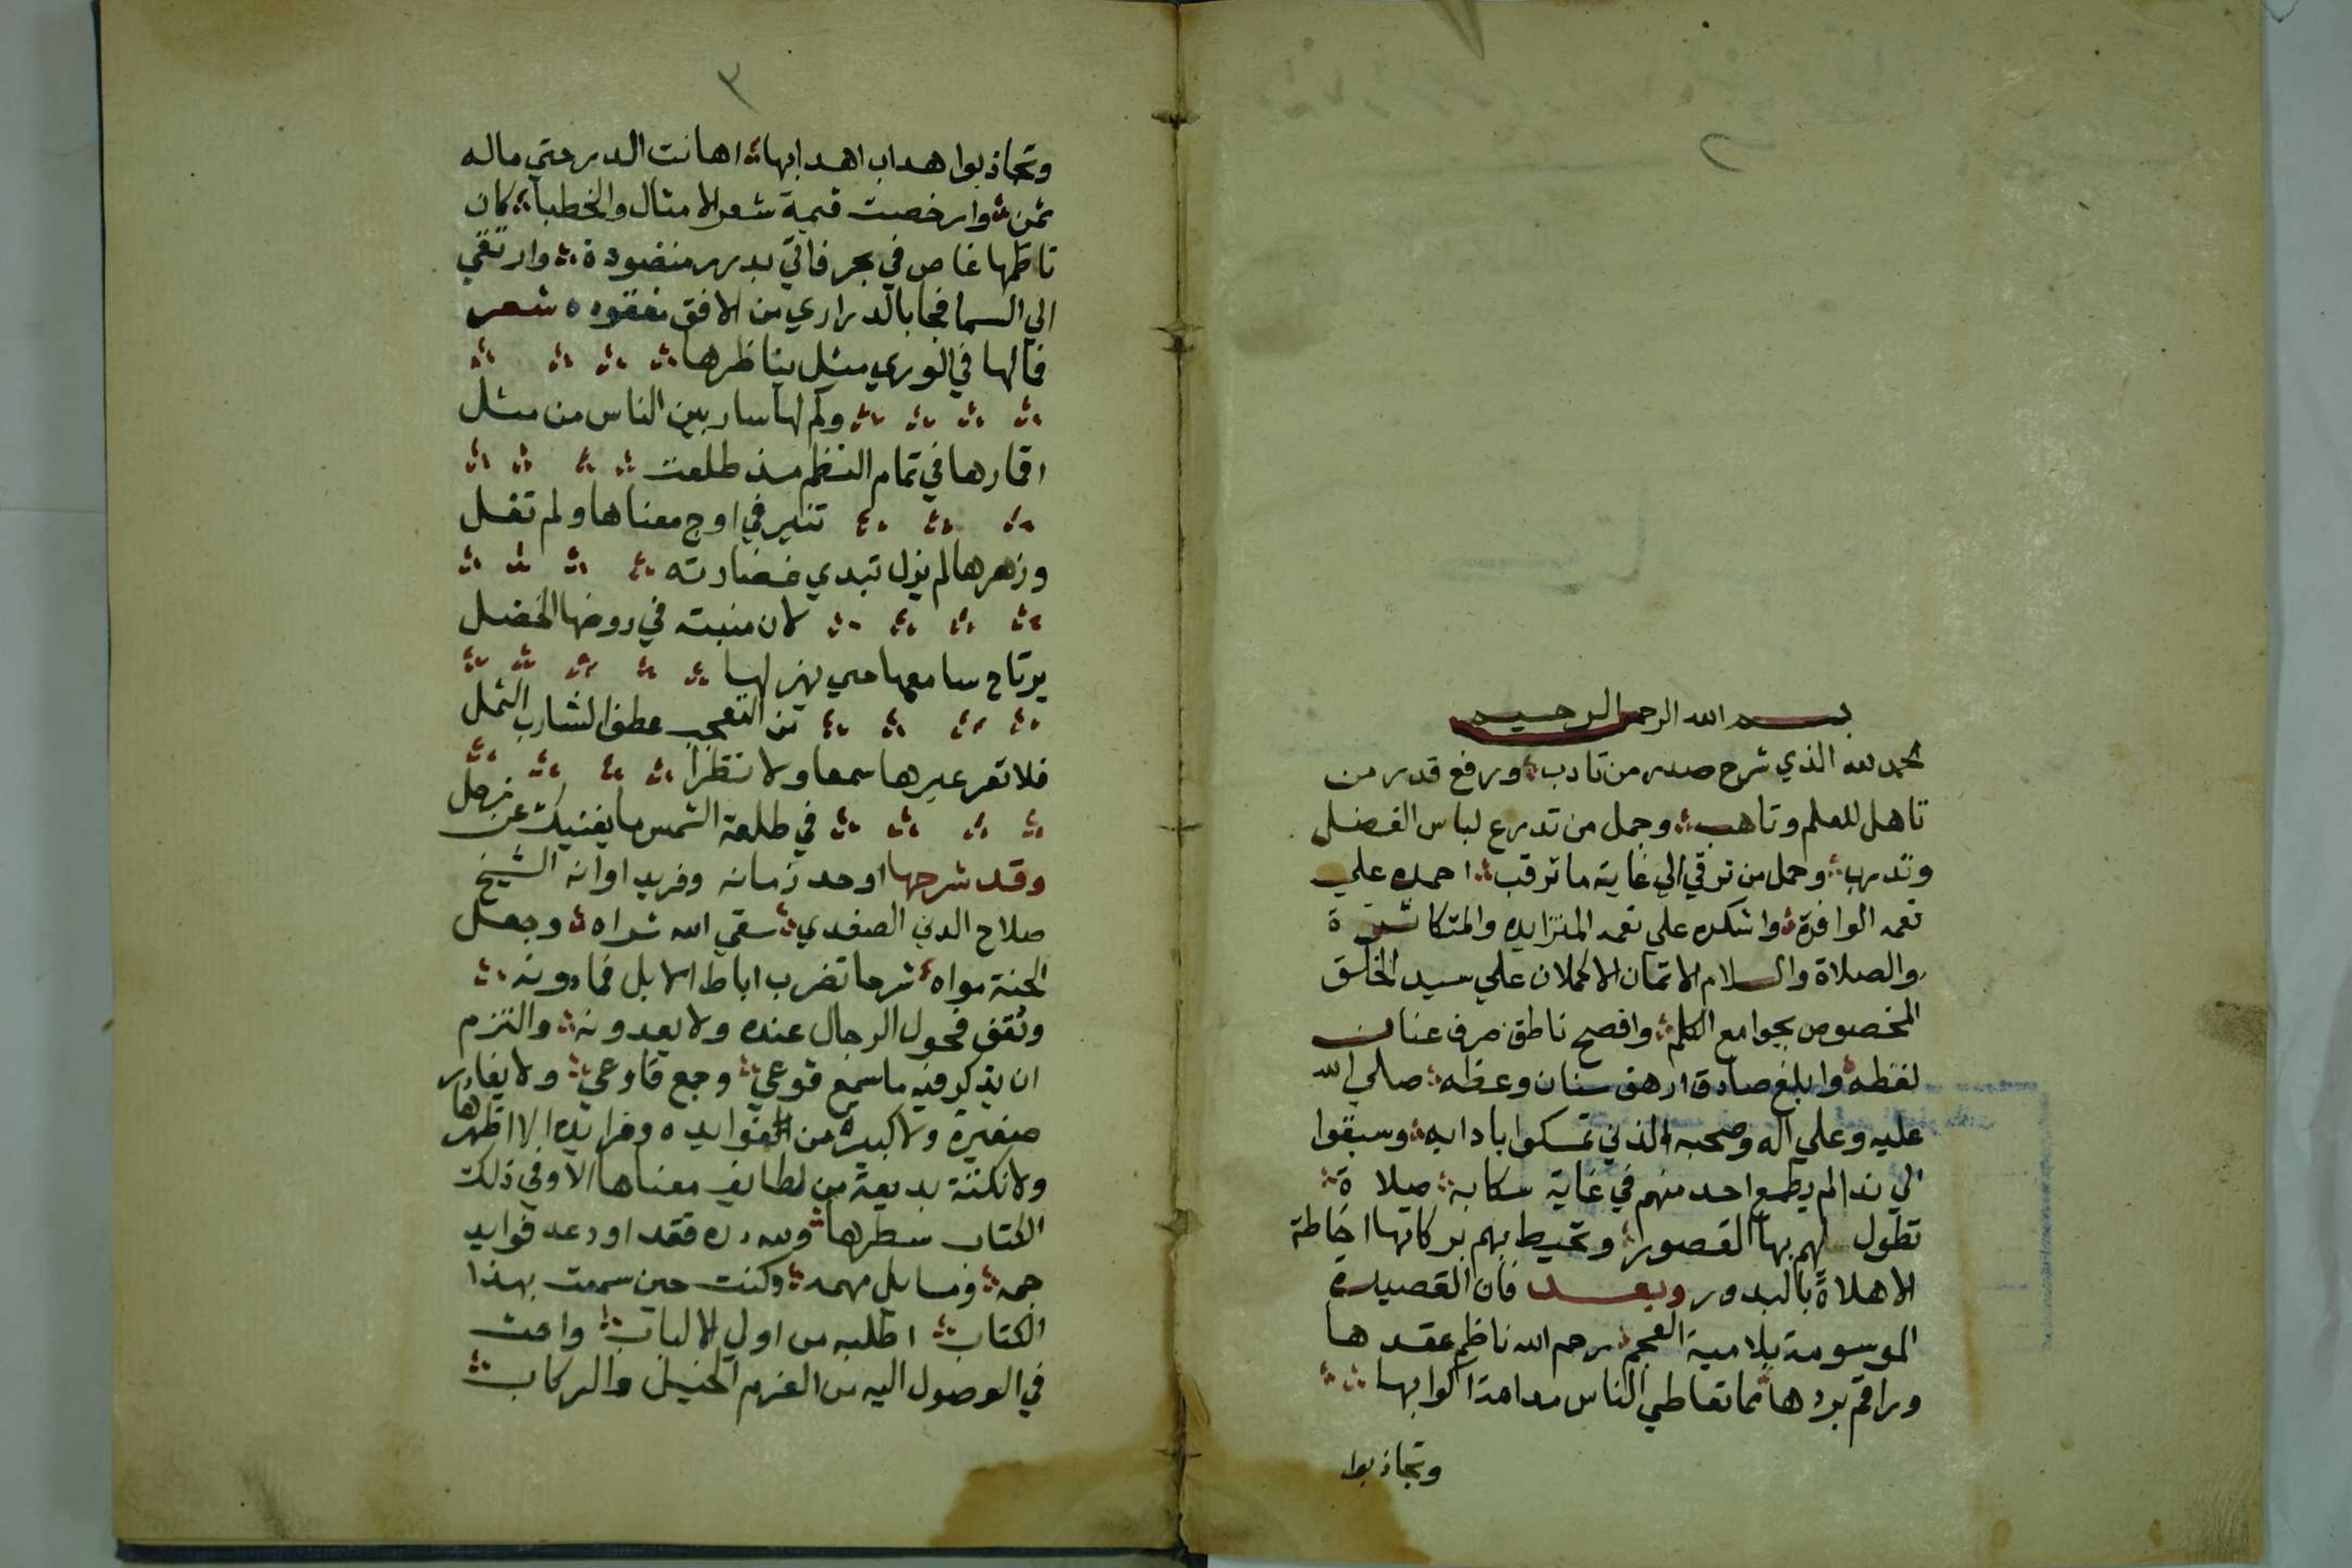 ٢
بسم الله الرحمن الرحيم
الحمد لله الذي شرح صدر من تادب ورفع قدر من
تاهل للعلم وتاهب وجمل من تدرع لباس الفضل
وتدرب وحمل من ترقي الي غاية ما ترقب احمده علي
نعمه الوافرة واشكره علي نعمه المتزايده والمتكاثرة
والصلاة والسلام الاتمان الاكملان علي سيد الخلق
المخصوص بجوامع الكلم وافصح ناطق صرف عنان
لفظه وابلغ صادق ارهف سنان وعظه صلي الله
عليه وعلي اله وصحبه الذين تمسكوا بادابه وسبقوا
الي ندا لم يطمع احد منهم في غاية سكابه صلاة
تطول لهم بها القصور وتحيط بهم بركاتها احاطة
الاهلاة بالبدور وبعد فان القصيدة
الموسومة بلامية العجم رحم الله ناظم عقدها
وراقم بردها مما تعاطي الناس مدامة اكوابها
وتجاذبوا
٣
وتجاذبوا هداب اهدابها اهانت الدر حتي ماله
ثمن وارخصت قيمة شعر الامثال والخطبا كان
ناظمها غاص في بحر فاتي بدرر منضودة وارتقي
الي السما فجا بالدراري من الافق معقوده شعر
فمالها في الوري مثل يناظرها
وكم لها سار بين الناس من مثل
اقمارها في تمام النظم مذ طلعت
تنير في اوج معناها ولم تفل
وزهرها لم يزل تبدي غضارته
لان منبته في روضها الخضل
يرتاح سامعها حتي يهز لها
من التعجب عطف الشارب الثمل
فلا تعر غيرها سمعا ولا نظرا
في طلعة الشمس ما يغنيك عن زحل
وقد شرحها اوحد زمانه وفريد اوانه الشيخ
صلاح الدين الصفدي سقي الله ثراه وجعل
الجنة مواه شرحا تضرب اباط الابل فما دونه
وتقف فحول الرجال عنده ولا يعدونه والتزم
ان يذكر فيه ما سمع فوعي وجمع فاوعي ولا يغادر
صغيرة ولا كبيرة من الفوايده وفرايده الا اظهرها
ولا نكتة بديعة من لطايف معناها الا وفي ذلك
الكتاب سطرها ولله دره فقد اودعه فوايد
جمه ومسايل مهمه وكنت حين سمعت بهذا
الكتاب اطلبه من اولي الالباب واحث
في الوصول اليه من العزم الخيل والركاب